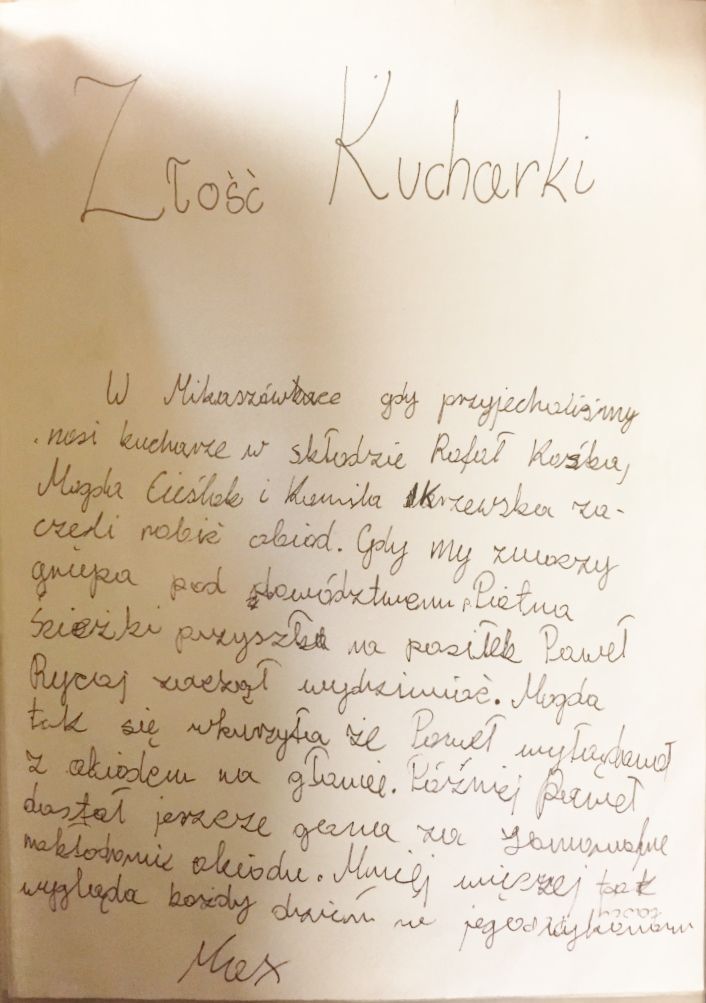 Złość Kucharki
W Mikaszówkace gdy przyjechaliśmy
nasi kucharze w składzie Rafał Kośka,
Magda Cieślak i Kamila Krzewska za-
częli robić obiod. Gdy my zmarzy
grupa pod dowództwem Piotra
Ścieżki przyszła na posiłek Paweł
Rycaj zaczął wydziwiać. Magda
tak się wkurzyła że Paweł wylądował
z obiadem na głowie. Później Paweł
dostał jeszcze garna za
nakłodanie obiodu. Mniej więzej tak
wygląda każdy dzień w jego wykonaniu
Max